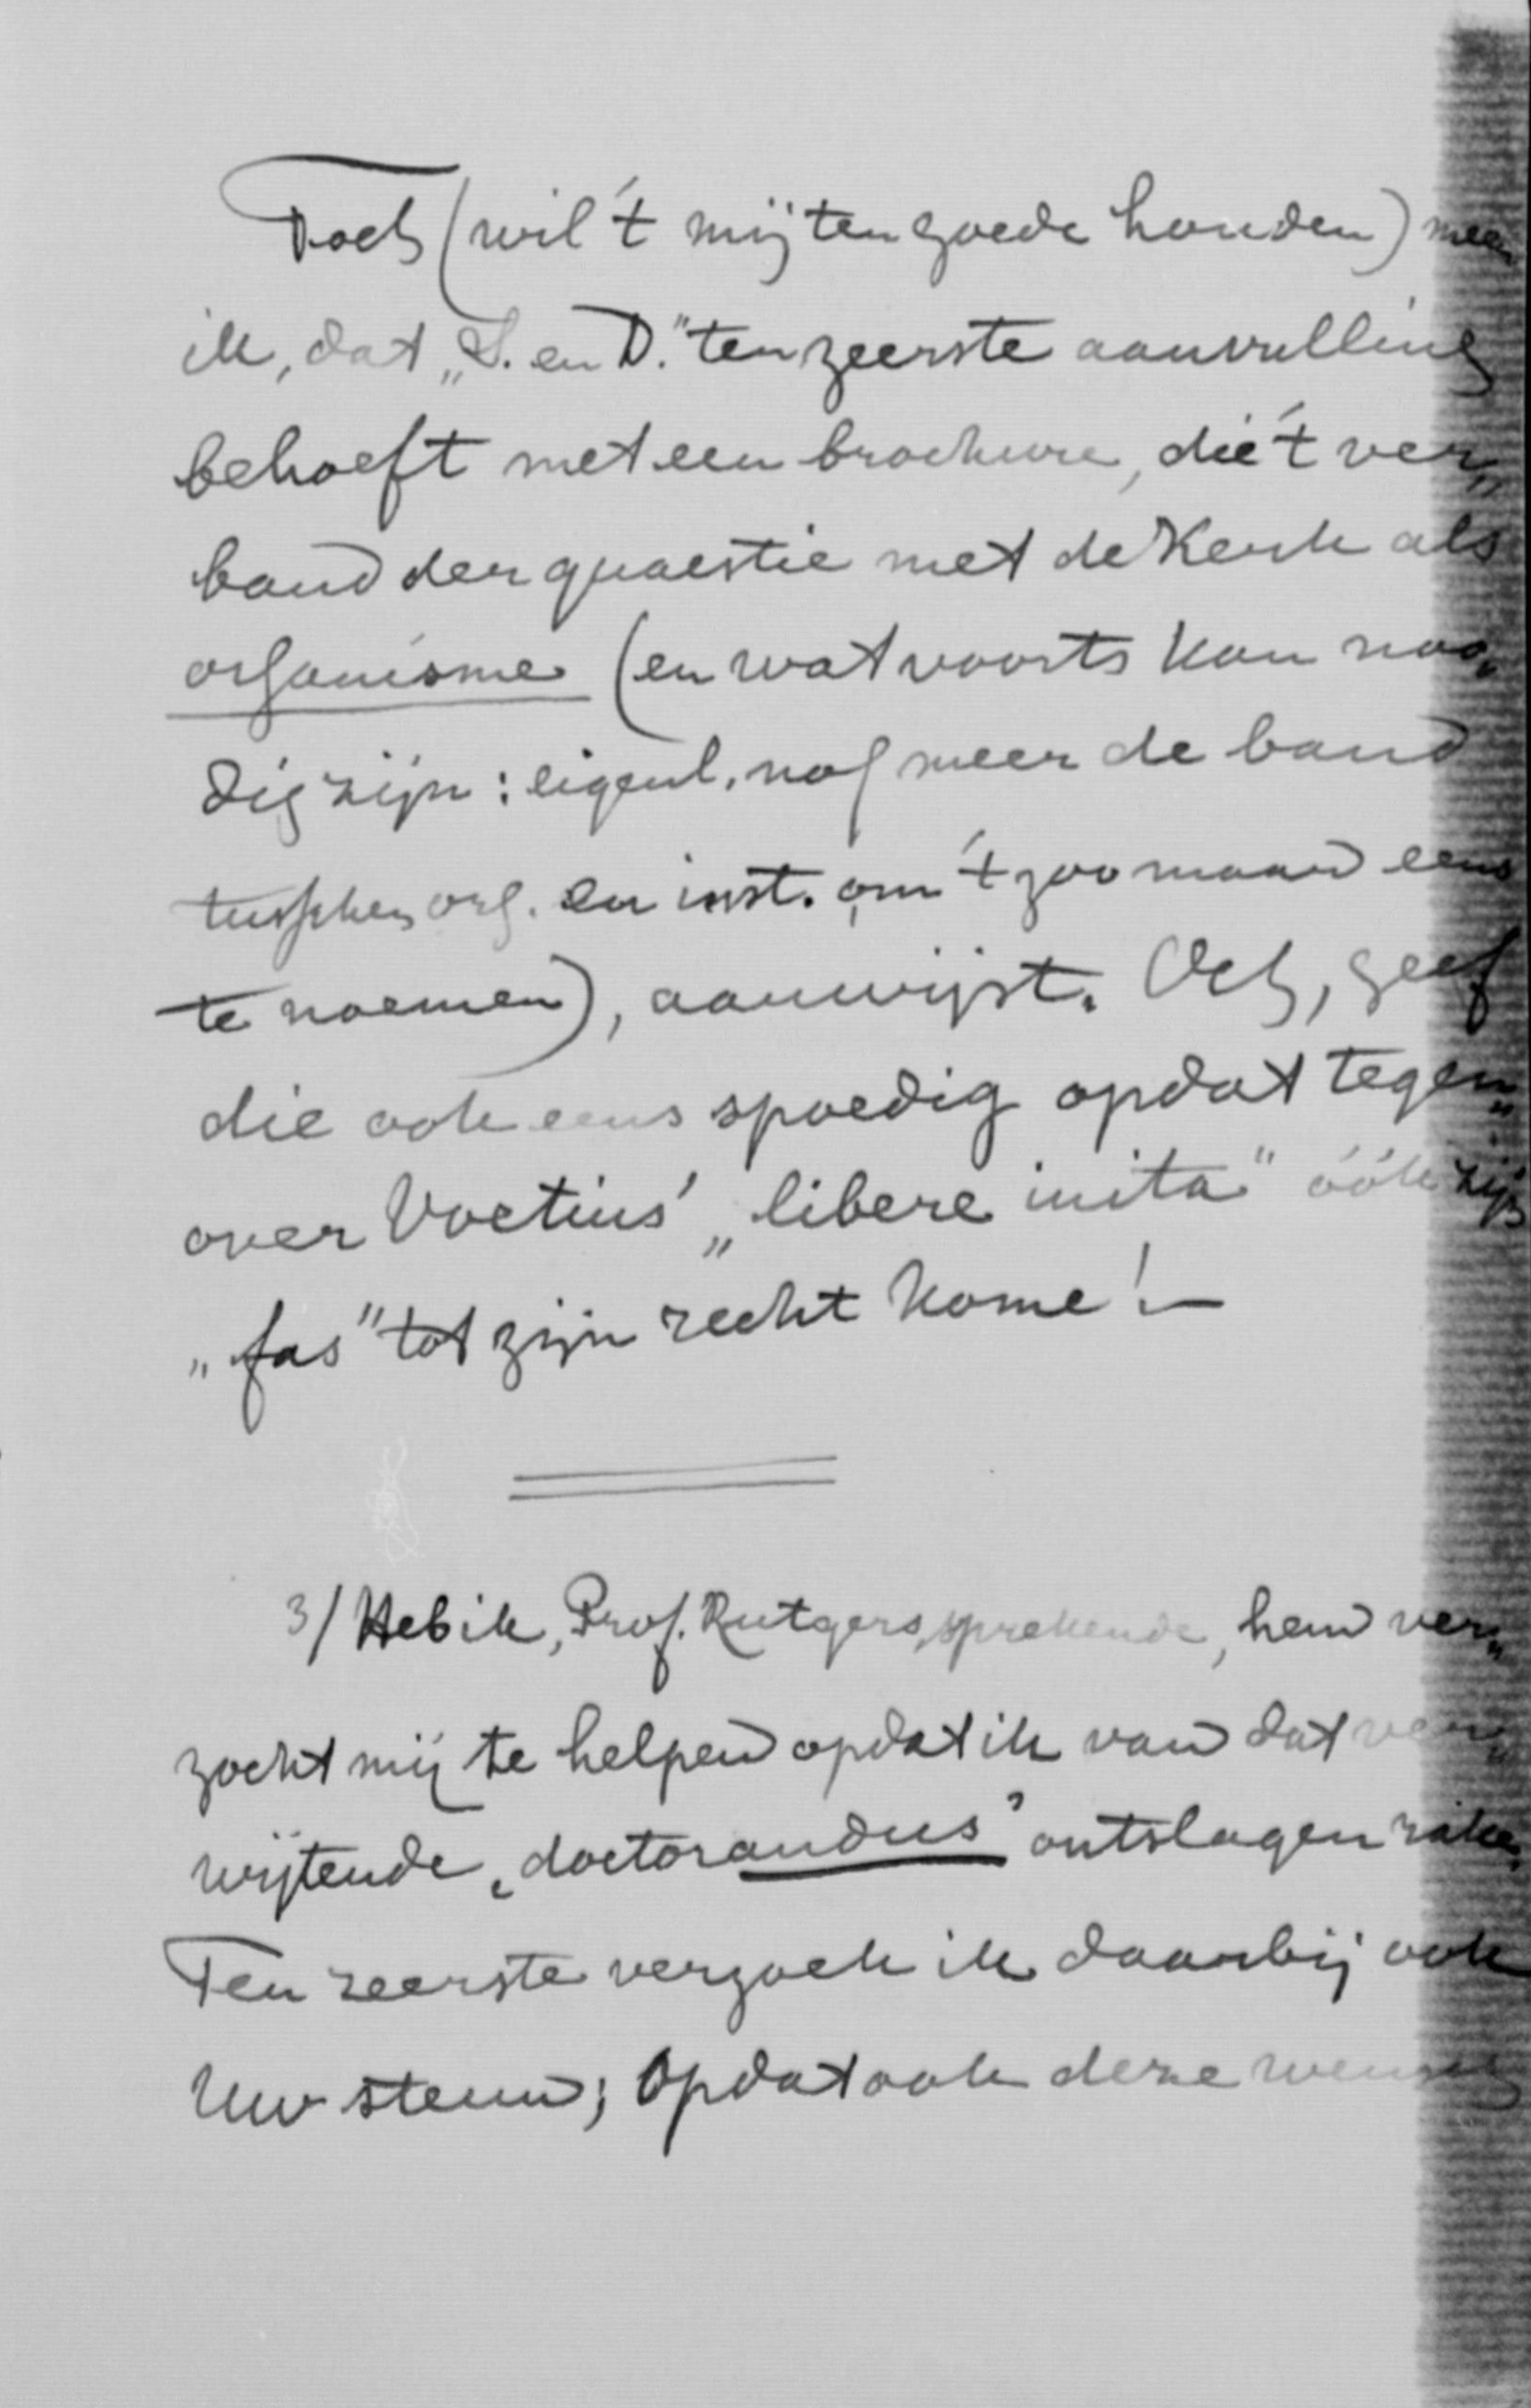 Toch (wil 't mij ten goede houden) meen
ik, dat „S. en D." ten zeerste aanvulling
behoeft met een brochure, die 't ver„
band der quaestie met de Kerk als
organisme (en wat voorts kan noo„
dig zijn: eigenl. nog meer de band
tusschen org. en inst. om 't zoo maar eens
te noemen), aanwijst. Och, geef
die ook eens spoedig opdat tegen„
over Voetius' „libere inita" óók zijn
„fas" tot zijn recht kome! —
3/ Heb ik, Prof. Rutgers sprekende, hem ver„
zocht mij te helpen opdat ik van dat ver„
wijtende „doctorandus" ontslagen rake.
Ten zeerste verzoek ik daarbij ook
Uw steun; opdat ook deze wensch